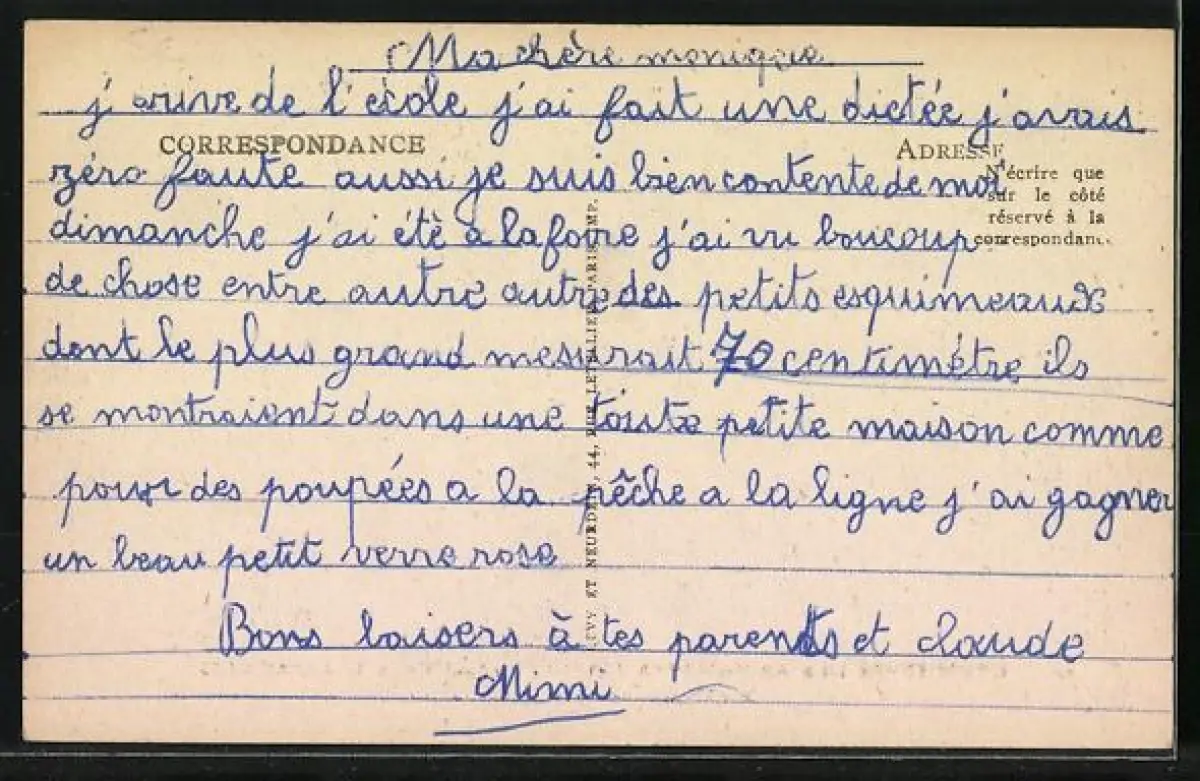 Ma chère monique
j'arive de l'école j'ai fait une dictée j'avais
CORRESPONDANCE
ADRESSE
zéro faute aussi je suis bien contente de moi
N'écrire que
sur le côté
réservé à la
correspondance
dimanche j'ai étè a la foire j'ai vu boucoup
de chose entre autre autre des petits esquimeaux
dont le plus grand mesurait 70 centimétre ils
se montraient dans une toute petite maison comme
pour des poupées a la pêche a la ligne j'ai gagner
un beau petit verre rose
Bons baisers à tes parents et claude
Mimi
LEVY ET NEURDEIN, 44, RUE LETELLIER, PARIS IMP.